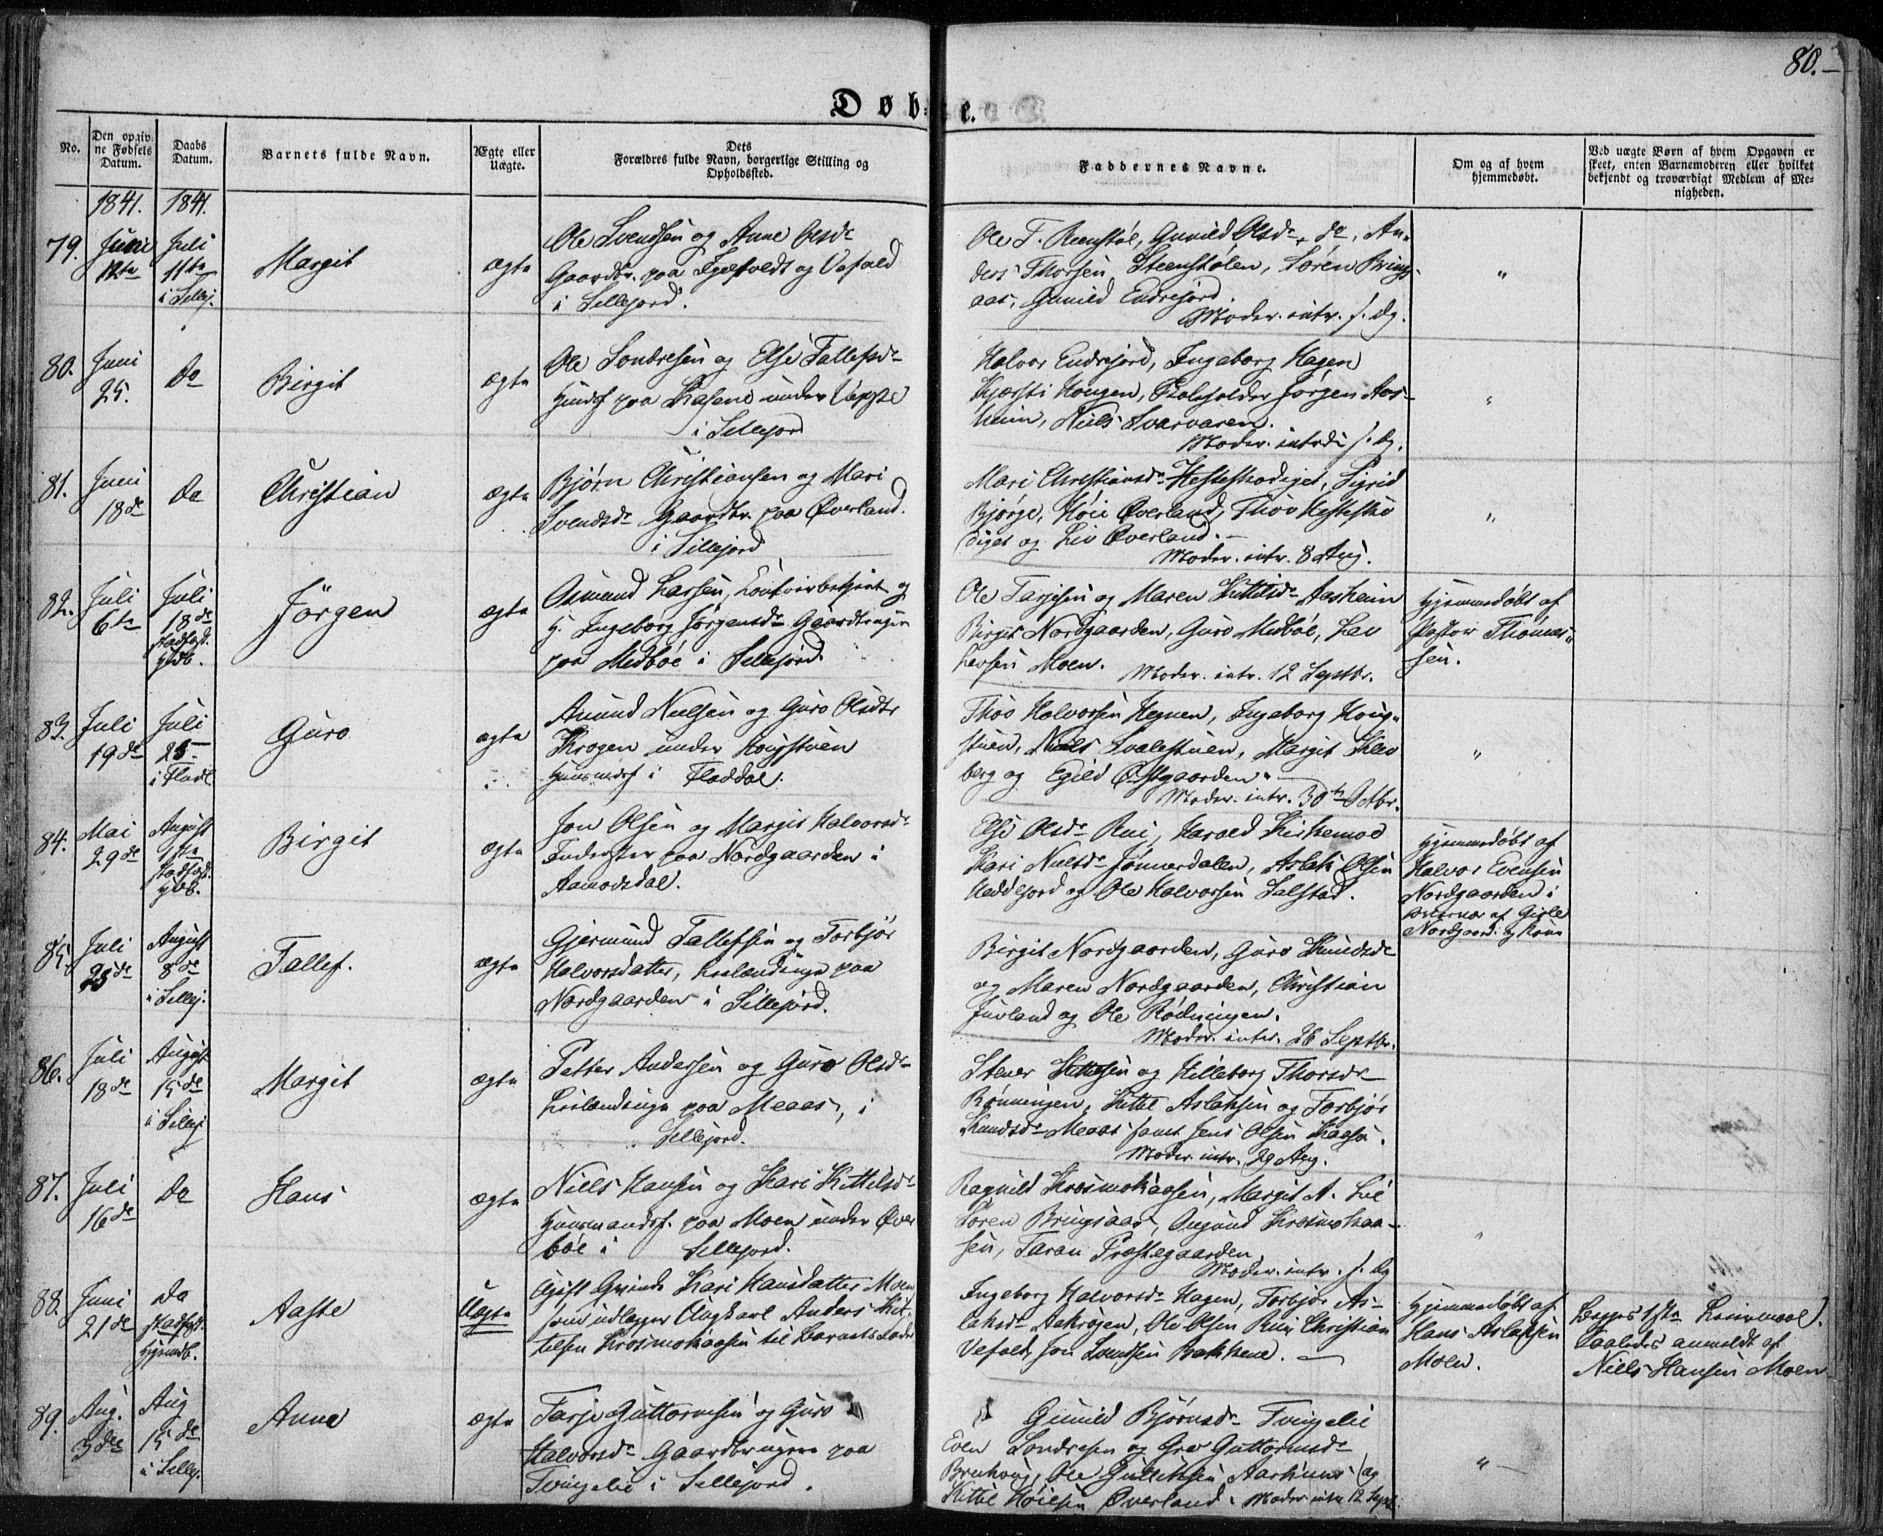 80.
Døbte.
No.
Den opgivne Fødsels Datum.
Daabs Datum.
Barnets fulde Navn.
Ægte eller Uægte.
Dets Forældres fulde Navn, borgerlige Stilling og Opholdssted.
Faddernes Navne.
Om og af hvem hjemmedøbt.
Ved uægte Børn af hvem Opgaven er skeet, enten Barnemoderen eller hvilket bekjendt og troværdigt Medlem af Menigheden.
1841. 1841.
79. Junii 12te
Juli 11te i Sillej.
Margit
ægte
Ole Svendsen og Anne Olsdr
Gaardbr. paa og Vefald
i Sillejord.
Ole T. Gunild Olsdr, do, An-
ders Thorsen Steenstølen, Søren Brings-
aas, Gunild Endrejord.
Moder. intr. s. Dg.
"
80. Juni 25.
Do
Birgit
ægte
Ole Sondresen og Else Tallefsdr
Huusf paa Kasene under
i Sillejord
Halvor Endrejord, Ingeborg Hagen
Kjersti Haugen, Skoleholder Jørgen Aas-
heim, Niels Svarvaren.
Moder. introd: s. Dg.
"
81. Juni 18de
Do
Christian
ægte
Bjørn Christiansen og Mari
Svendsdr Gaardbr. paa Øverland.
i Sillejord
Mari Christiansdr Hesteskodiget, Sigrid
Bjørge, Høie Øverland, Thov Hestesko
diget og Liv Øverland.
Moder. intr. 8 Aug.
"
82. Juli 6te
Juli 18de stadfæst. Hjdb.
Jörgen
ægte
Asmund Larsen, og
H. Ingeborg Jørgensdr Gaardbruger
paa Midbøe i Sillejord
Ole Tarjesen og Maren Kittilsdr Aasheim
Birgit Nordgaarden, Guro Midbøe, Lev
Levsen Moen. Moder. intr. 12 Septbr.
Hjemmedøbt af
Pastor Thomes-
sen.
83. Juli 19de
Juli 25 i Fladl
Guro
ægte
Amund Nielsen og Guro Olsdtr
Krogen under
Huusmdsf i Fladdal.
Thov Halvorsen Ingeborg
Niels Svalestuen, Margit
berg og Egild Østgaarden
Moder. intr. 30te Octbr.
"
84. Mai 29de
August 1ste stadfæst. Hjdb.
Birgit
ægte
Jon Olsen og Margit Halvorsdr
Inderster paa Nordgaarden i
Aamotsdal.
Else Olsdr Rui, Harald Kirkemoe
Kari Nielsdr Aslak Olsen
og Ole Halvorsen
Hjemmedøbt af
Halvor Evensen
Nordgaarden i
af
Nordgaard. og Kone
85. Juli 25de
August 8de i Sillej.
Tallef.
ægte
Gjermund Tallefsen og Torbjør
Halvorsdatter, Leilændinge paa
Nordgaarden i Sillejord.
Birgit Nordgaarden, Guro Knudsdr
og Maren Nordgaarden, Christian
Juvland og Ole Rødningen.
Moder. intr. 26 Septbr.
86. Juli 18de
August 15de i Sillej
Margit
ægte
Petter Andersen og Guro Olsdr
Leilændinge paa Meaas, i
Sillejord.
Stener og Hilleborg Thorsdr
Rønningen, Kittel Aslaksen og Torbjør
Knudsdr Meaas samt Jens Olsen Kaasa.
Moder. intr. 29 Aug.
87. Juli 16de
Do
Hans
ægte
Niels Hansen og Kari Kittilsdr
Huusmandsf. paa Moen under Øver
bøe i Sillejord.
Ragnild Krosmokaasen, Margit A. Lie
Søren Bringsaas, Augund Krosmokaa-
sen, Taran Præstegaarden.
Moder. intr. s. Dg
"
88. Juni 21de
Do stadfæst. hjemdb.
Aaste
Uægte
Ugift Qvinde Kari Hansdatter Moen
som udlægger Ungkarl Anders Kit-
telsen Krosmokaasen til Barnets Fader
Ingeborg Halvorsdr Hagen, Torbjør As-
laksdr Aakrogen, Ole Olsen Rui, Christian
Vefald, Jon Svendsen Bakkene.
Hjemmedøbt af
Hans Aslaksen
Moen.
Begges 1ste Leiermaal.
Saaledes anmeldt af
Niels Hansen Moen
89. Aug. 3die
Aug 15de i Sillej.
Anne
ægte
Tarje Guttormsen og Guro
Halvorsdr Gaardbrugere paa
Tvingelie i Sillejord.
Gunild Bjørnsdr Tvingelie
Even Sondresen og Grov Guttormsdr
Ole Gullichsen og
Kittel Høiesen Øverland. Moder intr 12 Sept.
"